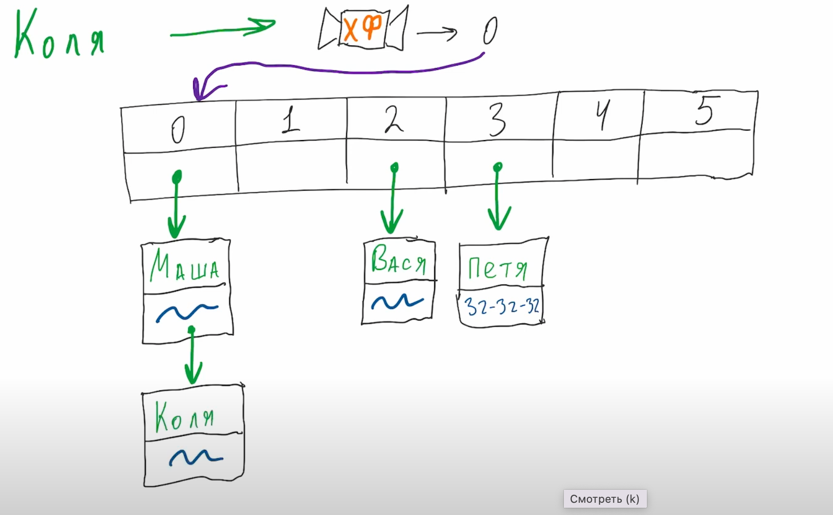 Коля ХФ 0
0 1 2 3 4 5
Маша Вася Петя
32-32-32
Коля
Смотреть (k)